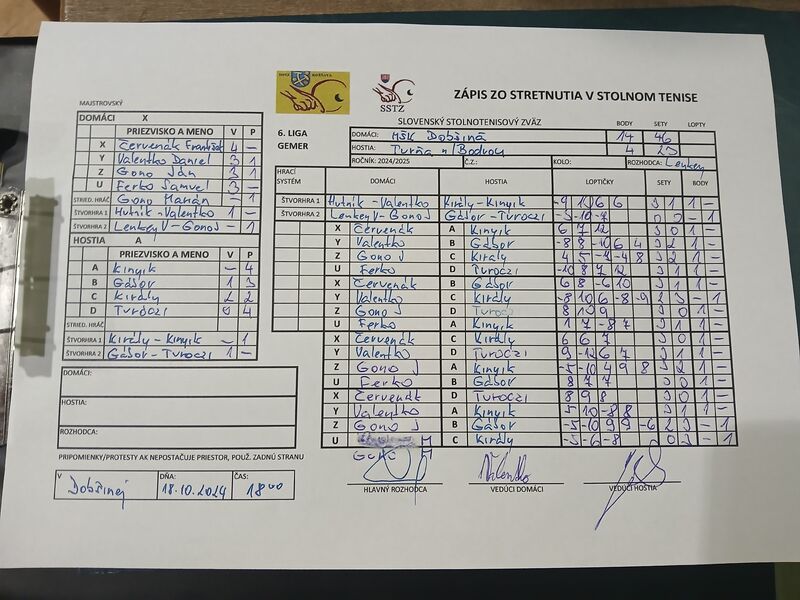 SSTZ
ZÁPIS ZO STRETNUTIA V STOLNOM TENISE
SLOVENSKÝ STOLNOTENISOVÝ ZVÄZ
BODY SETY LOPTY
6. LIGA
GEMER
DOMÁCI: MŠK Dobšiná 14 46
HOSTIA: Turňa n/Bodvou 4 23
ROČNÍK: 2024/2025 Č.Z.: KOLO: ROZHODCA: Lenkey
MAJSTROVSKÝ
DOMÁCI X
PRIEZVISKO A MENO V P
X Červenák František 4 –
Y Valentko Daniel 3 1
Z Gono Ján 3 1
U Ferko Samuel 3 –
STRIED. HRÁČ Gono Marián – 1
ŠTVORHRA 1 Hutník - Valentko 1 –
ŠTVORHRA 2 Lenkey V - Gono J – 1
HOSTIA A
PRIEZVISKO A MENO V P
A Kinyik – 4
B Gábor 1 3
C Király 2 2
D Turoczi 0 4
STRIED. HRÁČ
ŠTVORHRA 1 Király - Kinyik – 1
ŠTVORHRA 2 Gábor - Turoczi 1 –
DOMÁCI:
HOSTIA:
ROZHODCA:
PRIPOMIENKY/PROTESTY AK NEPOSTAČUJE PRIESTOR, POUŽ. ZADNÚ STRANU
V Dobšinej DŇA: 18.10.2024 ČAS: 18 00
HRACÍ SYSTÉM DOMÁCI HOSTIA LOPTIČKY SETY BODY
ŠTVORHRA 1 Hutník - Valentko Király - Kinyik -9 10 6 6 3 1 1 –
ŠTVORHRA 2 Lenkey V - Gono J Gábor - Turoczi – 1
X Červenák A Kinyik 6 7 12 3 0 1 –
Y Valentko B Gábor -8 8 -10 6 4 3 2 1 –
Z Gono J C Király 4 5 -7 -4 8 3 2 1 –
U Ferko D Turoczi -10 8 7 12 3 1 1 –
X Červenák B Gábor 6 8 -6 10 3 1 1 –
Y Valentko C Király -8 10 6 -8 -9 2 3 – 1
Z Gono J D Turoczi 8 10 9 3 0 1 –
U Ferko A Kinyik 1 7 -8 7 3 1 1 –
X Červenák C Király 6 6 7 3 0 1 –
Y Valentko D Turoczi 9 -12 6 7 3 1 1 –
Z Gono J A Kinyik -5 -10 4 9 8 3 2 1 –
U Ferko B Gábor 8 7 7 3 0 1 –
X Červenák D Turoczi 8 9 8 3 0 1 –
Y Valentko A Kinyik 5 10 -8 8 3 1 1 –
Z Gono J B Gábor -5 -10 9 9 -6 2 3 – 1
U Gono M C Király -5 -6 -8 0 3 – 1
HLAVNÝ ROZHODCA
Valentko
VEDÚCI DOMÁCI
VEDÚCI HOSTIA